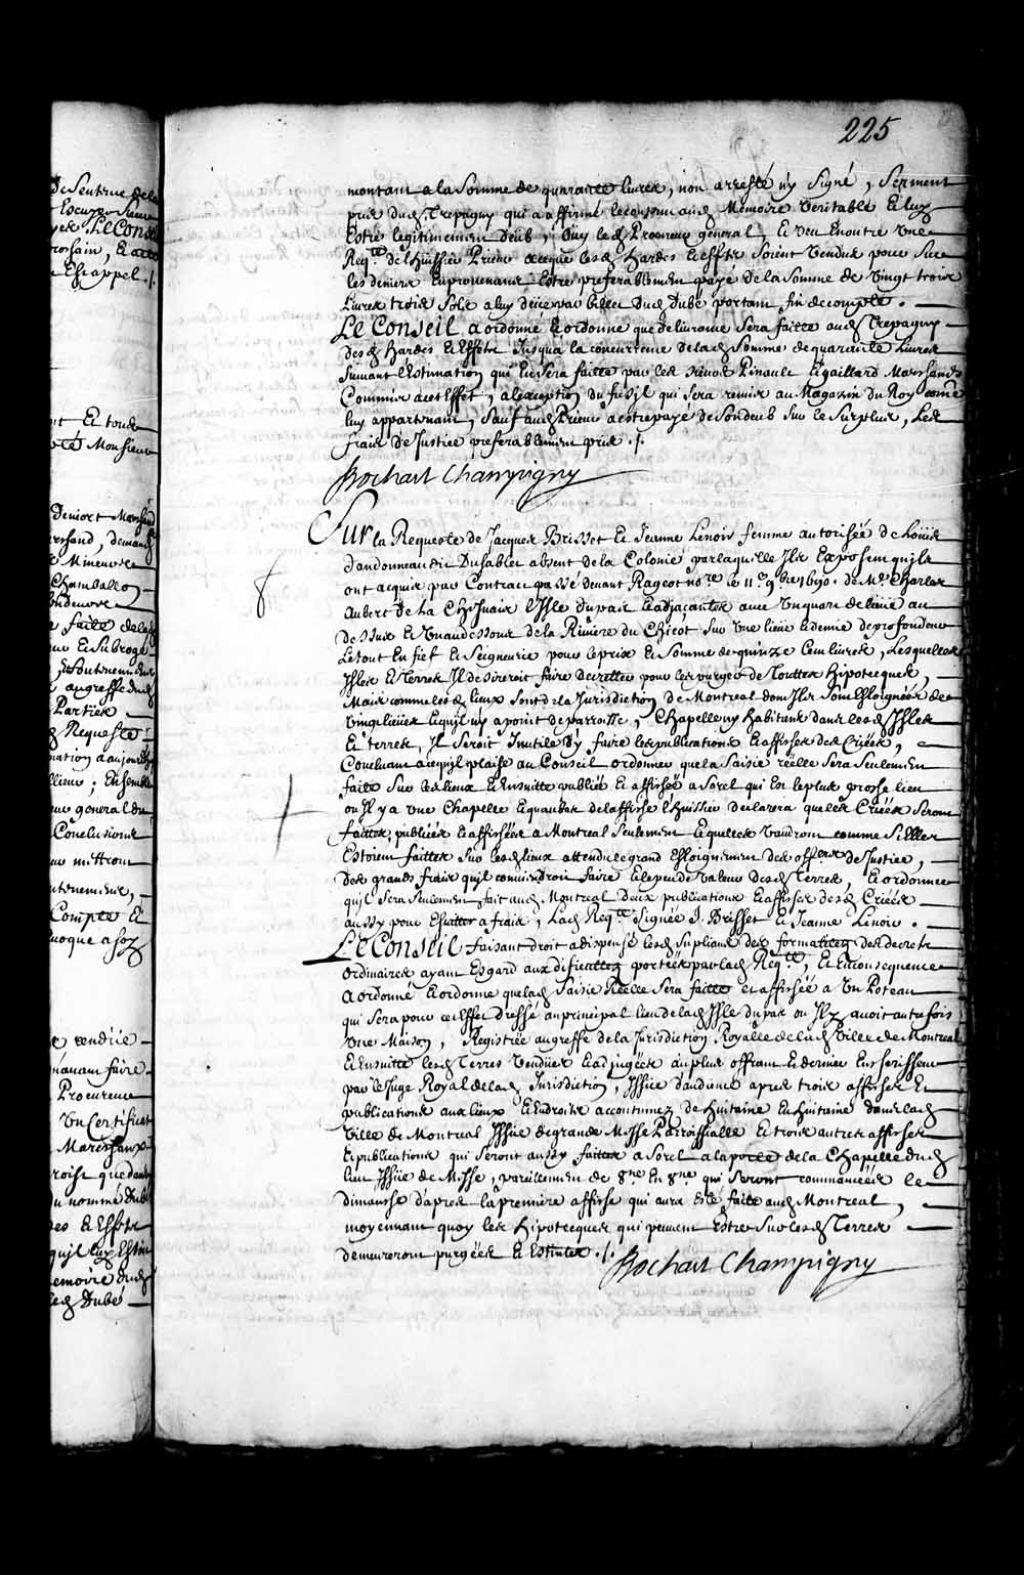 225
montant a la Somme de quarante livres, non arresté n'y Signé, Serment
pris dud. Trepagny qui a affirmé le contenu aud. Memoire veritable Et luy
Estre legitimement deub, Ouy led. Procureur general, Et veu Encoutre Une
Reqte. de l'huissier Prieur a ce que lesd. hardes Et effets soient Vendus pour Sur
les deniers En provenants Estre preferablement payé de la Somme de Vingt trois
Livres trois Sols a luy deue par billet dud. Dubé portant fin de compte.
Le Conseil a ordonné Et ordonne que delivrance Sera faitte aud. Trepagny
desd. hardes Et Effets Jusqu'a la concurrence de lad. Somme de quarante Livres
Suivant l'Estimation qui En Sera faitte par les Sieurs Pinault Et gaillard Marchands
Commis a cet Effet, a l'exception du fusil qui Sera remis au Magazin du Roy comme
luy appartenant, Sauf aud. Prieur a estre payé de Son deub Sur le Surplus, Les
frais de Justice preferablement pris ./.
Bochart Champigny
Sur la Requeste de Jacques Brisset Et Jeanne Lenoir femme autorisée de Loüis
dandonneau dit Dusablé absent de la Colonie par laquelle Ils Exposent qu'ils
ont acquis par Contract passé devant Rageot nore. le 11e. 9bre 1690. de Mr. Charles
Aubert de La Chesnaie l'Isle dupas Et adjacantes avec Un quart de lieüe au
dessus Et Un au dessous de la Riviere du Chicot Sur Une lieue Et demie de profondeur
Le tout En fief Et Seigneurie pour le prix Et Somme de quinze Cent livres, Lesquelles
Isles Et Terres Il desireroit faire decretter pour les purger de Touttes hipotecques,
Mais comme lesd. lieux Sont de la Jurisdiction de Montreal dont Ils Sont Esloignées de
Vingt lieües Et qu'il n'y a point de parroisse, Chapelle ny habitans dans lesd. Isles
Et terres, Il Seroit Inutile d'y faire les publications Et affiches des Criées,
Concluant a ce qu'il plaise au Conseil ordonner que la Saisie réelle Sera Seulement
faite Sur les lieux Et Ensuitte publiée Et affichée a Sorel qui Est le plus proche lieu
où Il y a Une Chapelle Et quau bas de l'affiche l'huissier declarera que les Criées Seront
faittes, publiées Et affichées a Montreal Seulement Lequelles Vaudront comme Si Elles
Estoient faittes Sur lesd. lieux attendu le grand Esloignement des offers. de Justice,
des grands frais qu'il conviendroit faire Et le peu de valeur desd. Terres, Et ordonner
qu'il Sera Seulement fait aud. Montreal deux publications Et affiches desd. Criées
aussy pour Eviter a frais, Lad. Reqte. Signée J. Brisset Et Jeanne Lenoir.
Le Conseil faisant droit a dispensé lesd. Supliants des formalitez des decrets
ordinaires ayant Esgard aux dificultez portées par lad. Reqte., Et En consequence
a ordonné Et ordonne que lad. Saisie Réelle Sera faitte et affichée a Un Poteau
qui Sera pour cet Effet dressé au principal lieu de lad. Isle dupas ou Il y avoit autrefois
Une Maison, Registrée au greffe de la Jurisdiction Royalle de lad. Ville de Montreal
Et Ensuitte lesd. Terres Vendües Et adjugées au plus offrant Et dernier Encherisseur
par le Juge Royal de lad. Jurisdiction, Issüe d'audience apres trois affiches Et
publications aux lieux Et Endroits accoutumez de huitaine En huitaine dans lad.
Ville de Montreal Issüe de grande Messe Parroissialle Et trois autres affiches
Et publications qui Seront aussy faittes a Sorel a la porte de la Chapelle dud.
lieu Issüe de Messe, pareillement de 8ne En 8ne qui Seront commancées le
dimanche d'apres la premiere affiche qui aura Esté faite aud. Montreal,
moyennant quoy les hipotecques qui peuvent Estre Sur lesd. Terres
demeureront purgées Et Estintes ./.
Bochart Champigny